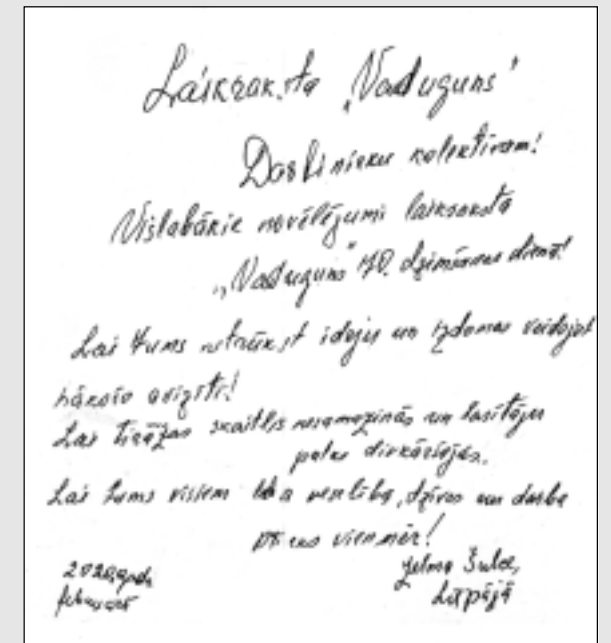 Laikraksta „Vaduguns”
Darbinieku kolektīvam!
Vislabākie novēlējumi laikraksta
„Vaduguns” 70. dzimšanas dienā!
Lai Jums netrūkst ideju un izdomas veidojot
nākošo avīzīti!
Lai tirāžas skaitlis nesamazinās un lasītāju
pulks divkāršojas.
Lai Jums visiem laba veselība, dzīves un darba
prieks vienmēr!
2020. gada
februārī
Zulce,
Liepājā